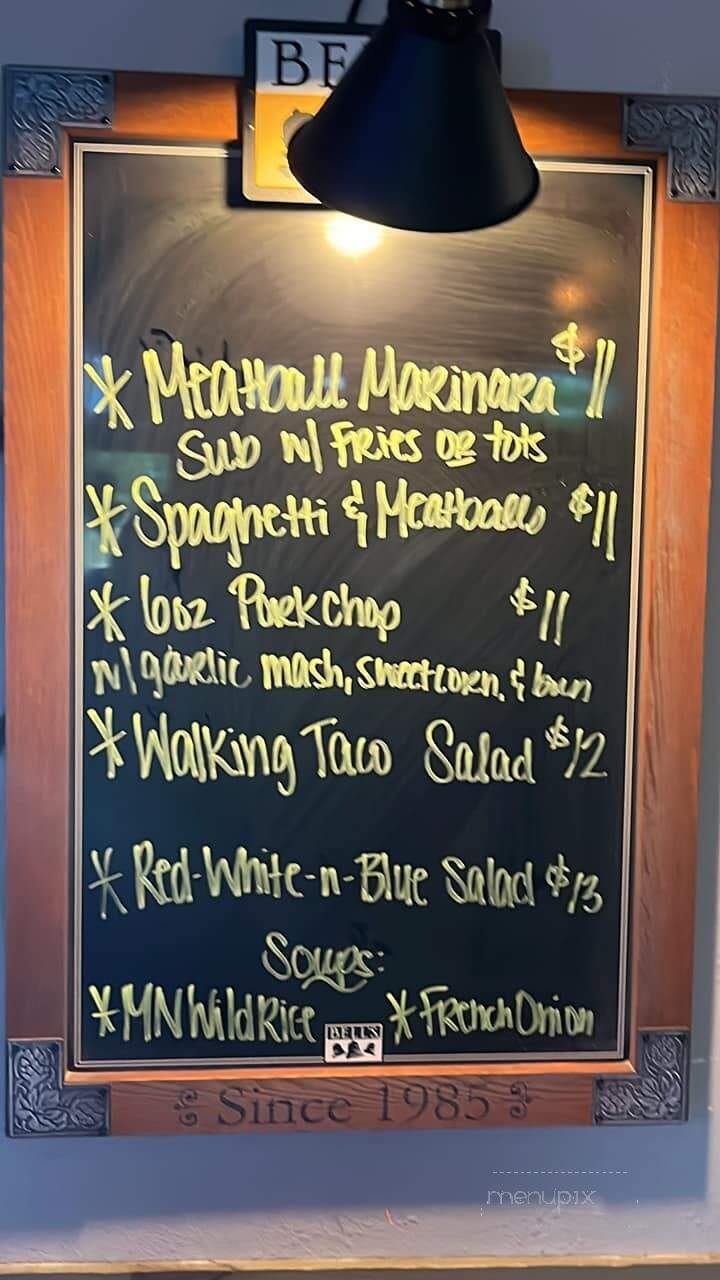 BE
* Meatball Marinara $11
Sub w/ Fries or tots
* Spaghetti & Meatballs $11
* 6oz Porkchop $11
w/ garlic mash, sweetcorn, &
* Walking Taco Salad $12
* Red-White-n-Blue Salad $13
Soups:
* MN Wild Rice * French Onion
BELL'S
Since 1985
menupix